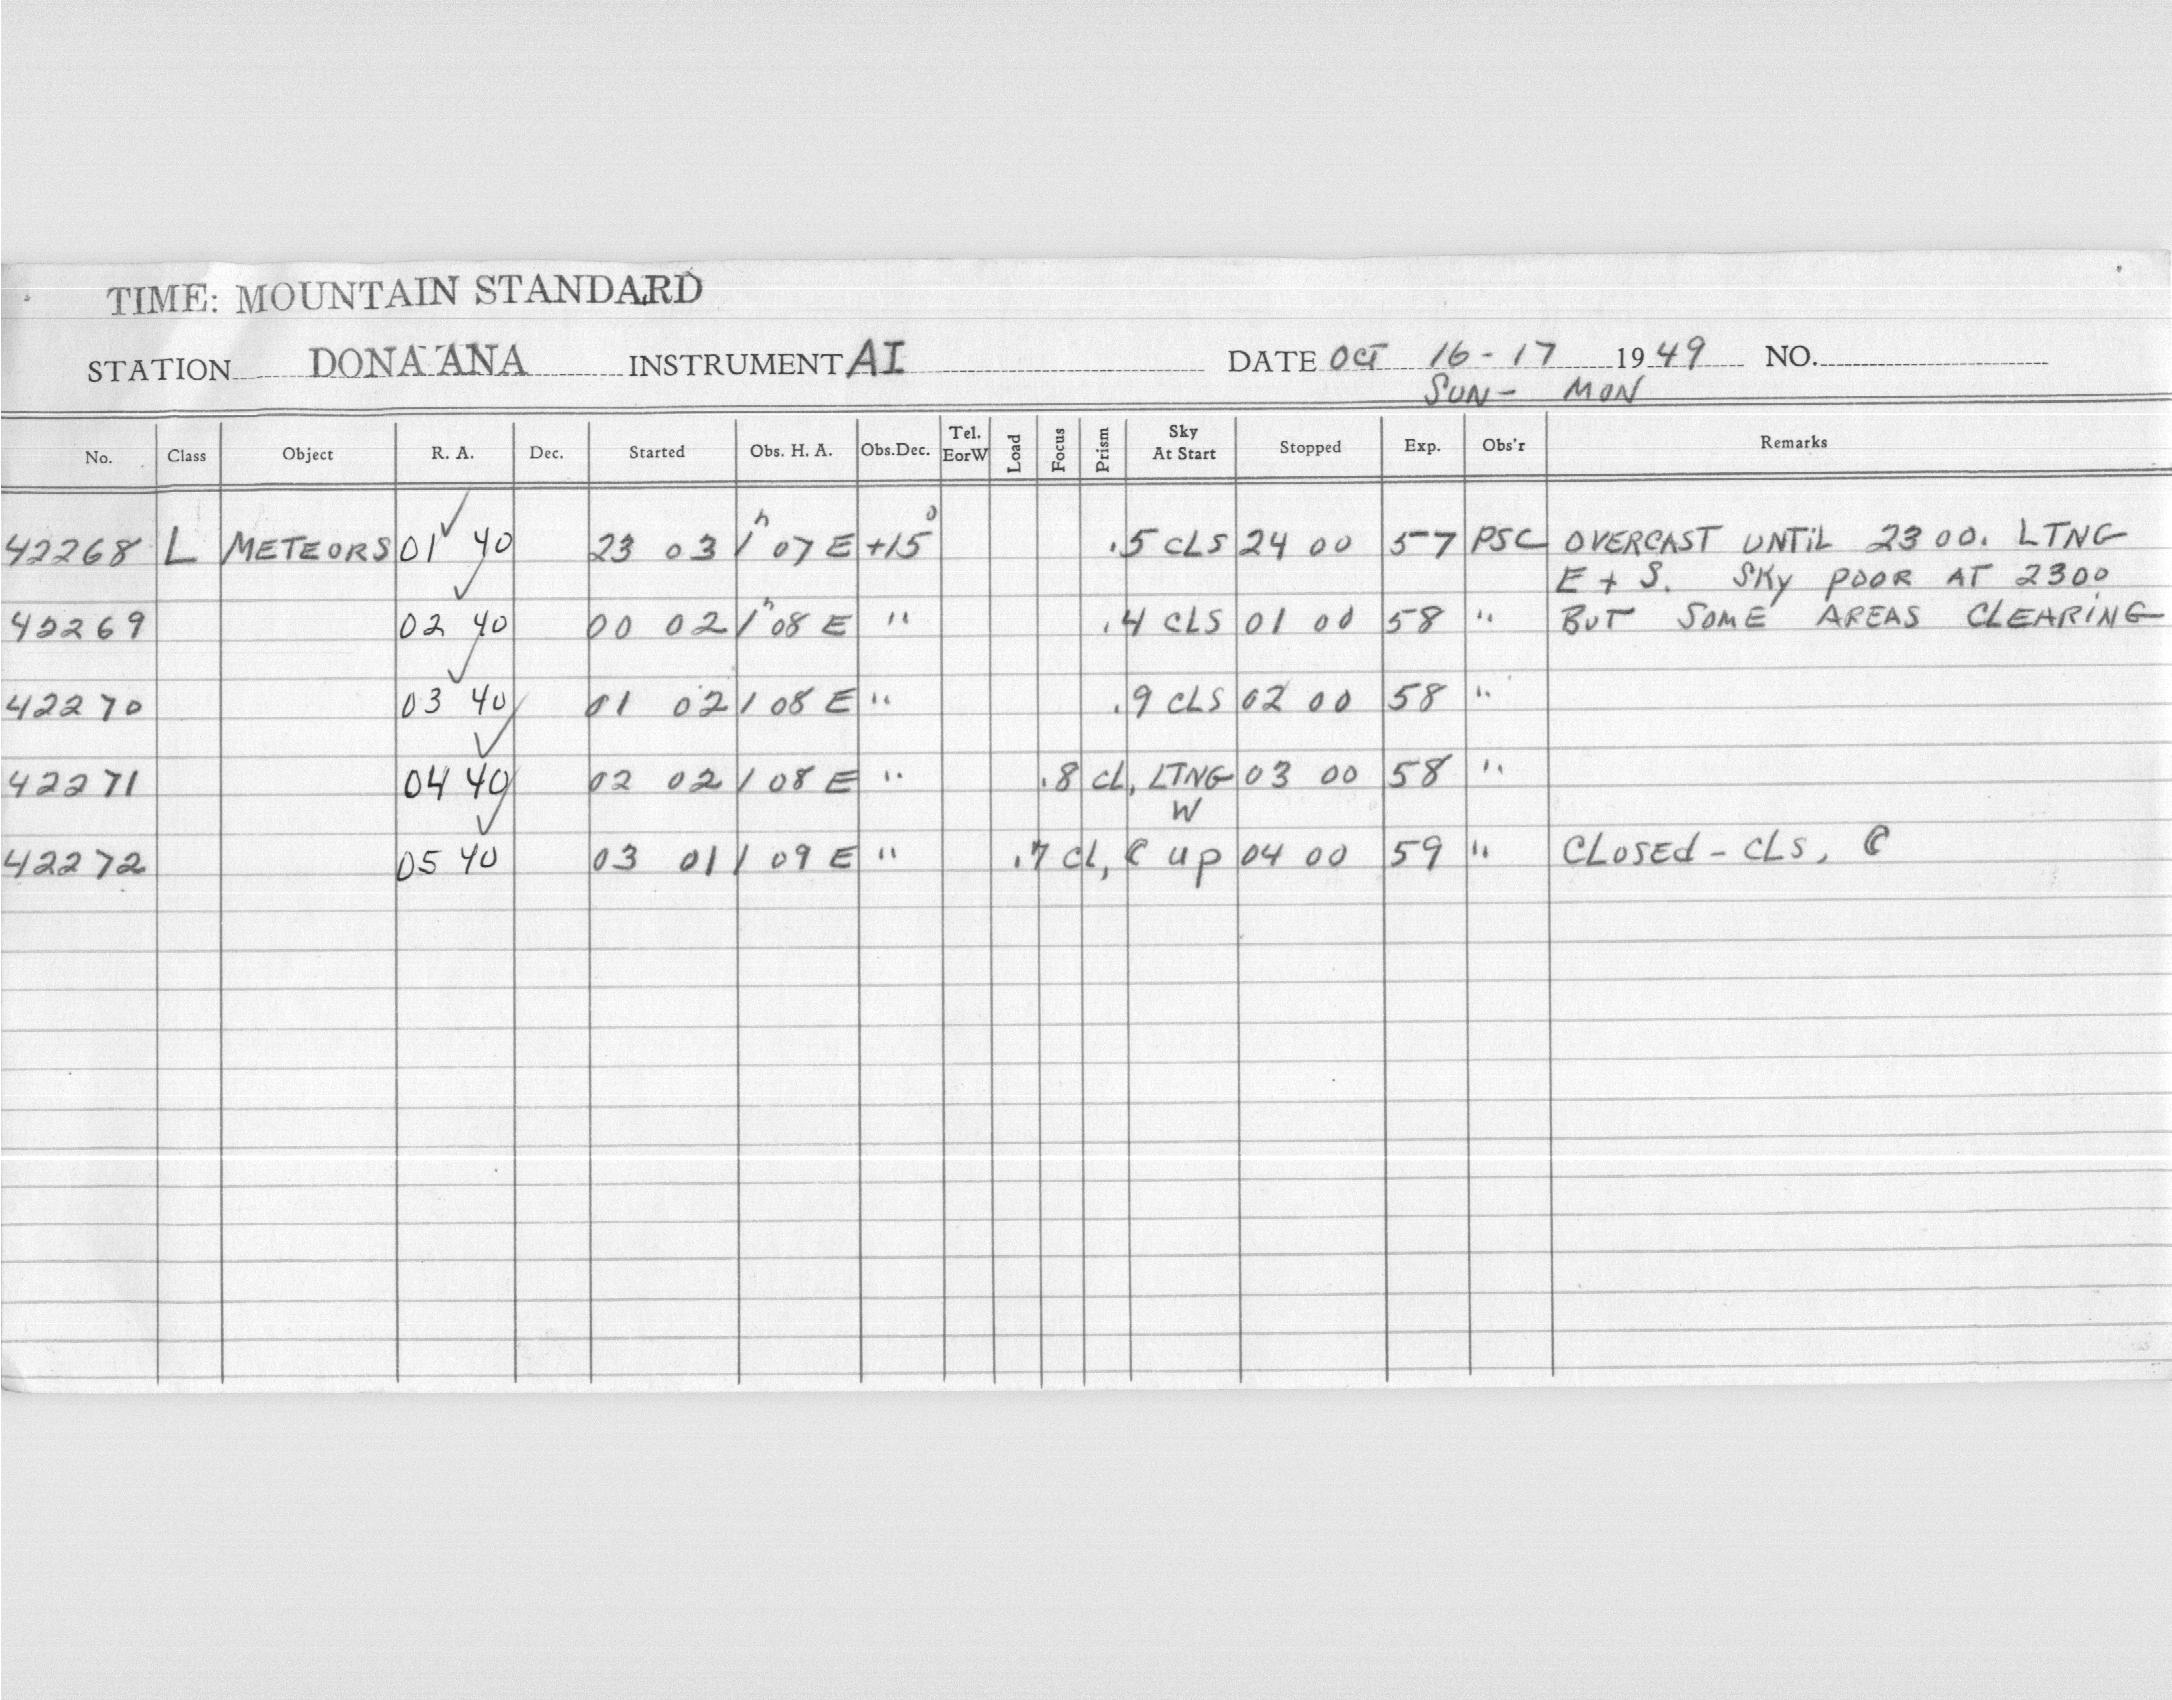 TIME: MOUNTAIN STANDARD
STATION DONA ANA INSTRUMENT AI DATE OCT 16-17 1949 NO.
SUN- MON
No. Class Object R. A. Dec. Started Obs. H. A. Obs.Dec. Tel. EorW Load Focus Prism Sky At Start Stopped Exp. Obs'r Remarks
42268 L METEORS 01 40 23 03 1h 07 E +15° .5 CLS 24 00 57 PSC OVERCAST UNTIL 2300. LTNG
E + S. SKY POOR AT 2300
42269 02 40 00 02 1h 08 E " .4 CLS 01 00 58 " BUT SOME AREAS CLEARING
42270 03 40 01 02 1 08 E " .9 CLS 02 00 58 "
42271 04 40 02 02 1 08 E " .8 CL, LTNG 03 00 58 "
W
42272 05 40 03 01 1 09 E " .7 CL, ☾ up 04 00 59 " CLOSEd - CLS, ☾